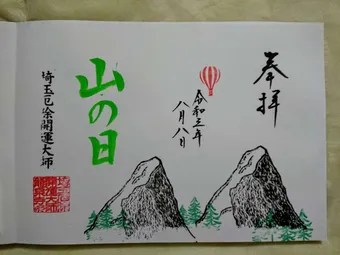 奉拝
令和三年
八月八日
山の日
埼玉厄除開運大師